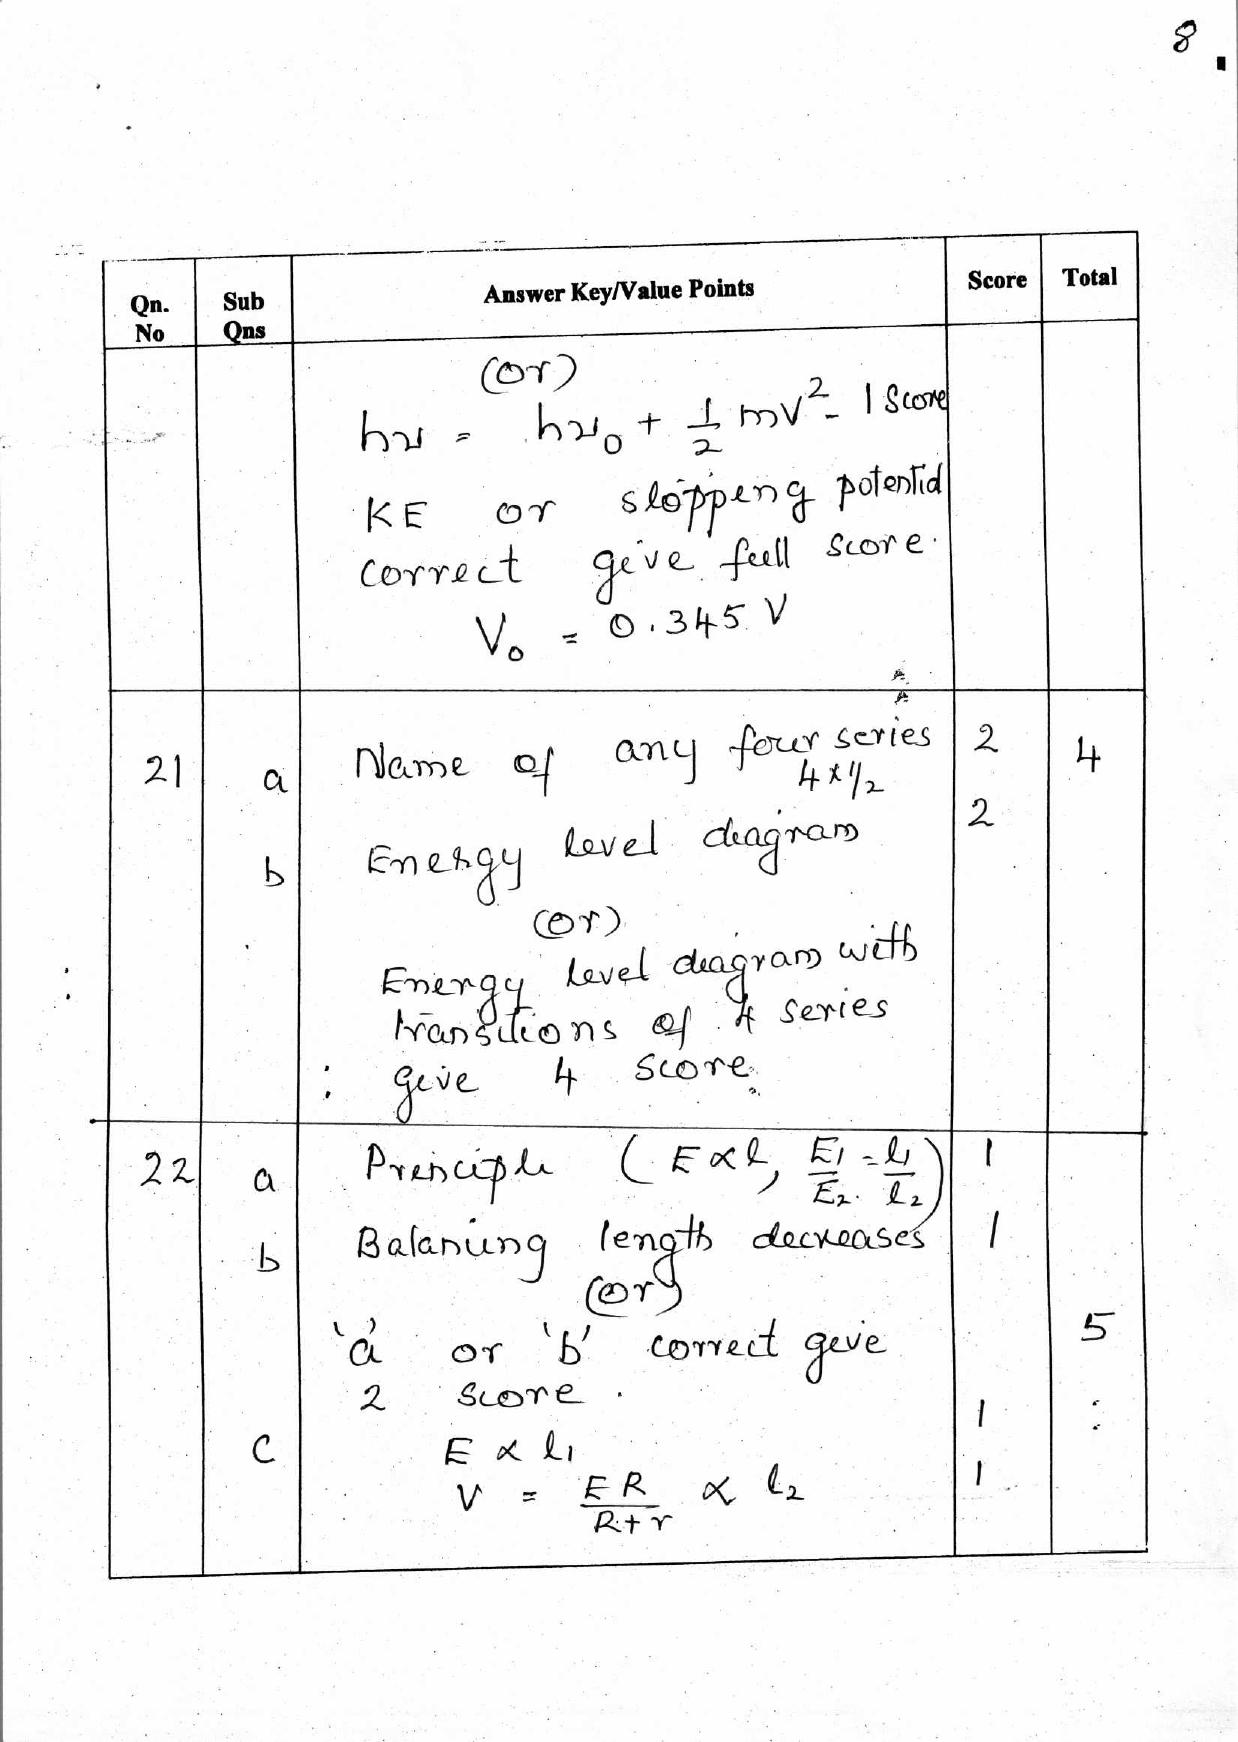 8
Qn. No Sub Qns Answer Key/Value Points Score Total
(or)
hν = hν₀ + 1/2 mv² - 1 Score
KE or stopping potential
correct give full score.
V₀ = 0.345 V
21 a Name of any four series 2 4
4 x 1/2
b Energy level diagram 2
(or)
Energy level diagram with
transitions of 4 series
give 4 score.
22 a Principle ( E ∝ l, E₁/E₂ = l₁/l₂ ) 1
b Balancing length decreases 1
(or)
'a' or 'b' correct give 5
2 score.
c E ∝ l₁ 1
V = ER/R+r ∝ l₂ 1